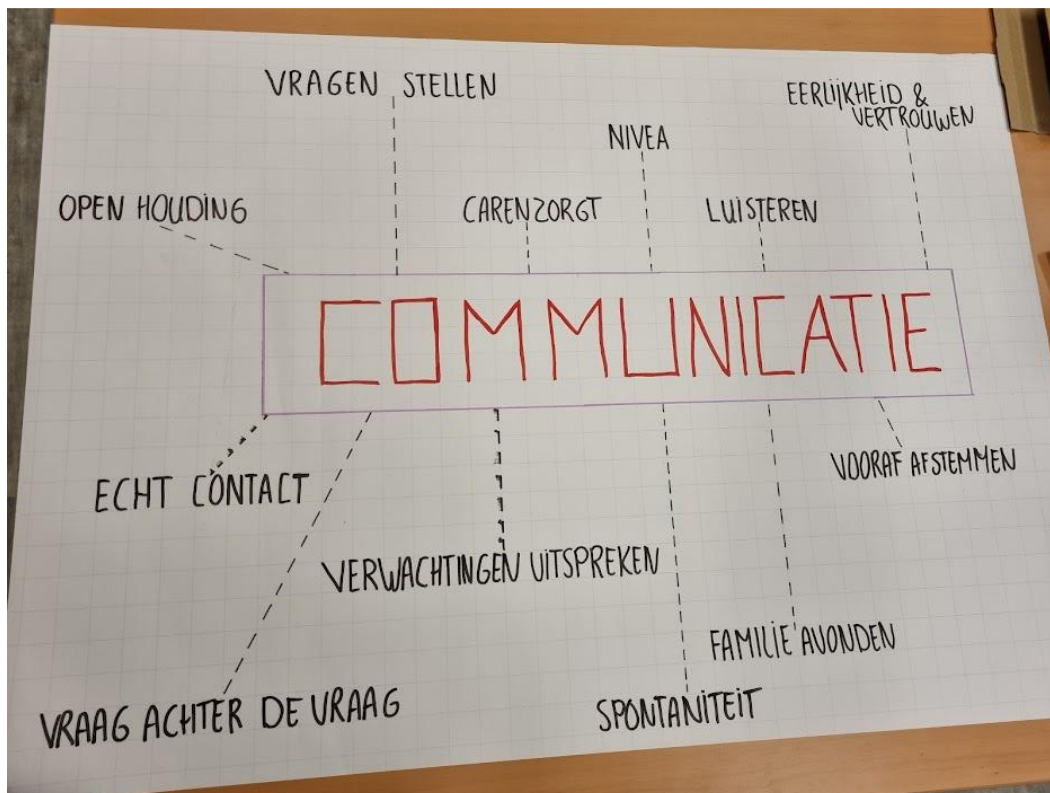 VRAGEN STELLEN
EERLIJKHEID &
VERTROUWEN
NIVEA
OPEN HOUDING
CARENZORGT
LUISTEREN
COMMUNICATIE
ECHT CONTACT
VOORAF AFSTEMMEN
VERWACHTINGEN UITSPREKEN
FAMILIE AVONDEN
VRAAG ACHTER DE VRAAG
SPONTANITEIT